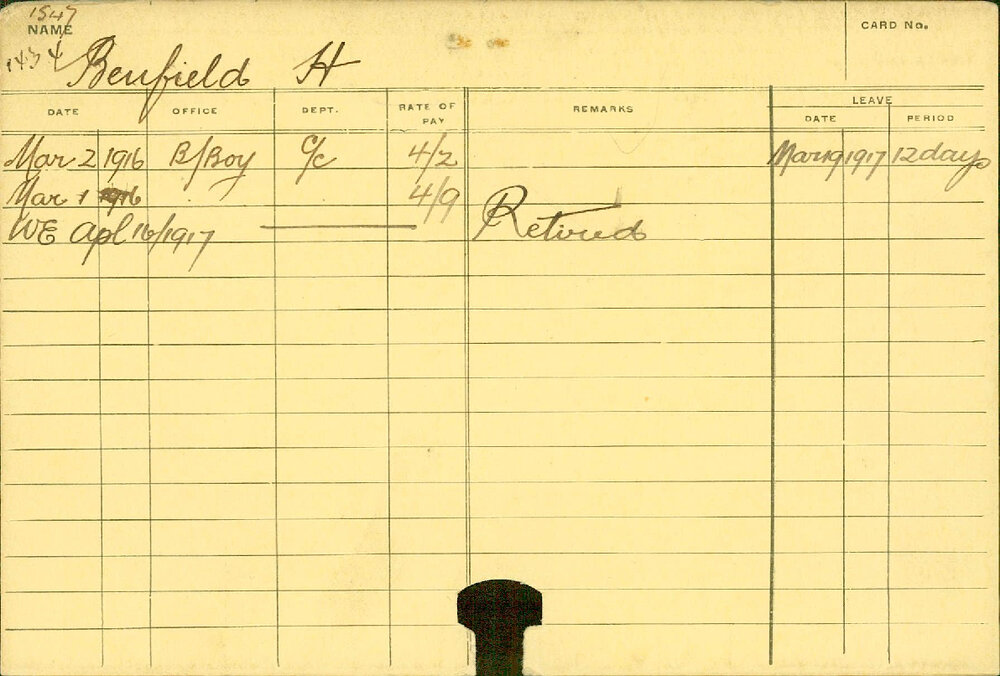 1547
NAME
CARD No.
1434
Benfield H
DATE OFFICE DEPT. RATE OF PAY REMARKS LEAVE
DATE PERIOD
Mar 2 1916 B/Boy C/c 4/2 Mar 19 1917 12 days
Mar 1 1916 4/9
WE Apl 16/1917 Retired